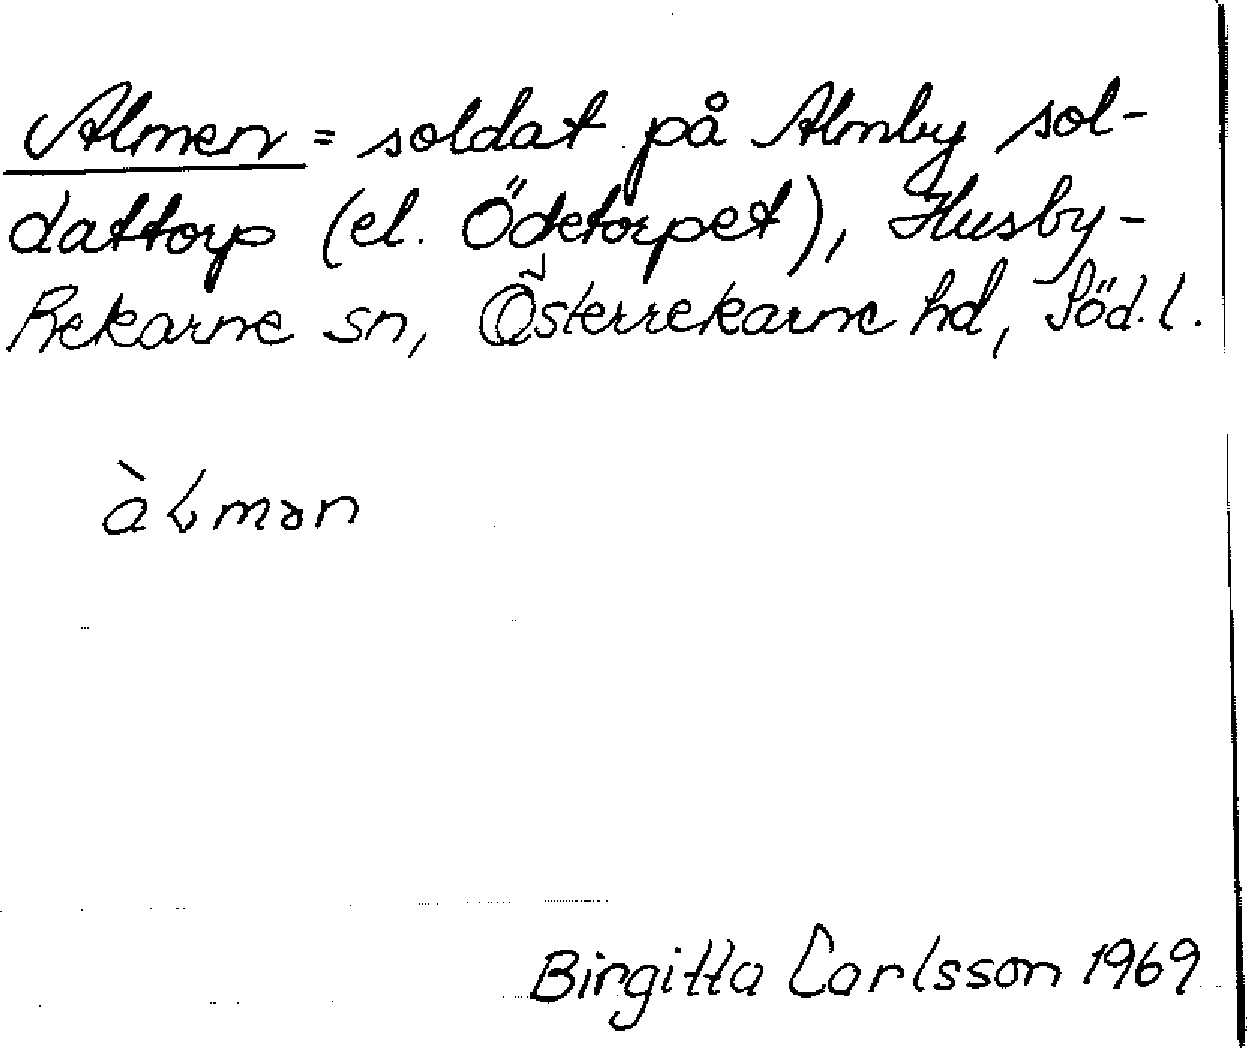 Almen = soldat på Almby sol-
dattorp (el. Ödetorpet), Husby-
Rekarne sn, Österrekarne hd, Söd. l.
àLmən
Birgitta Carlsson 1969